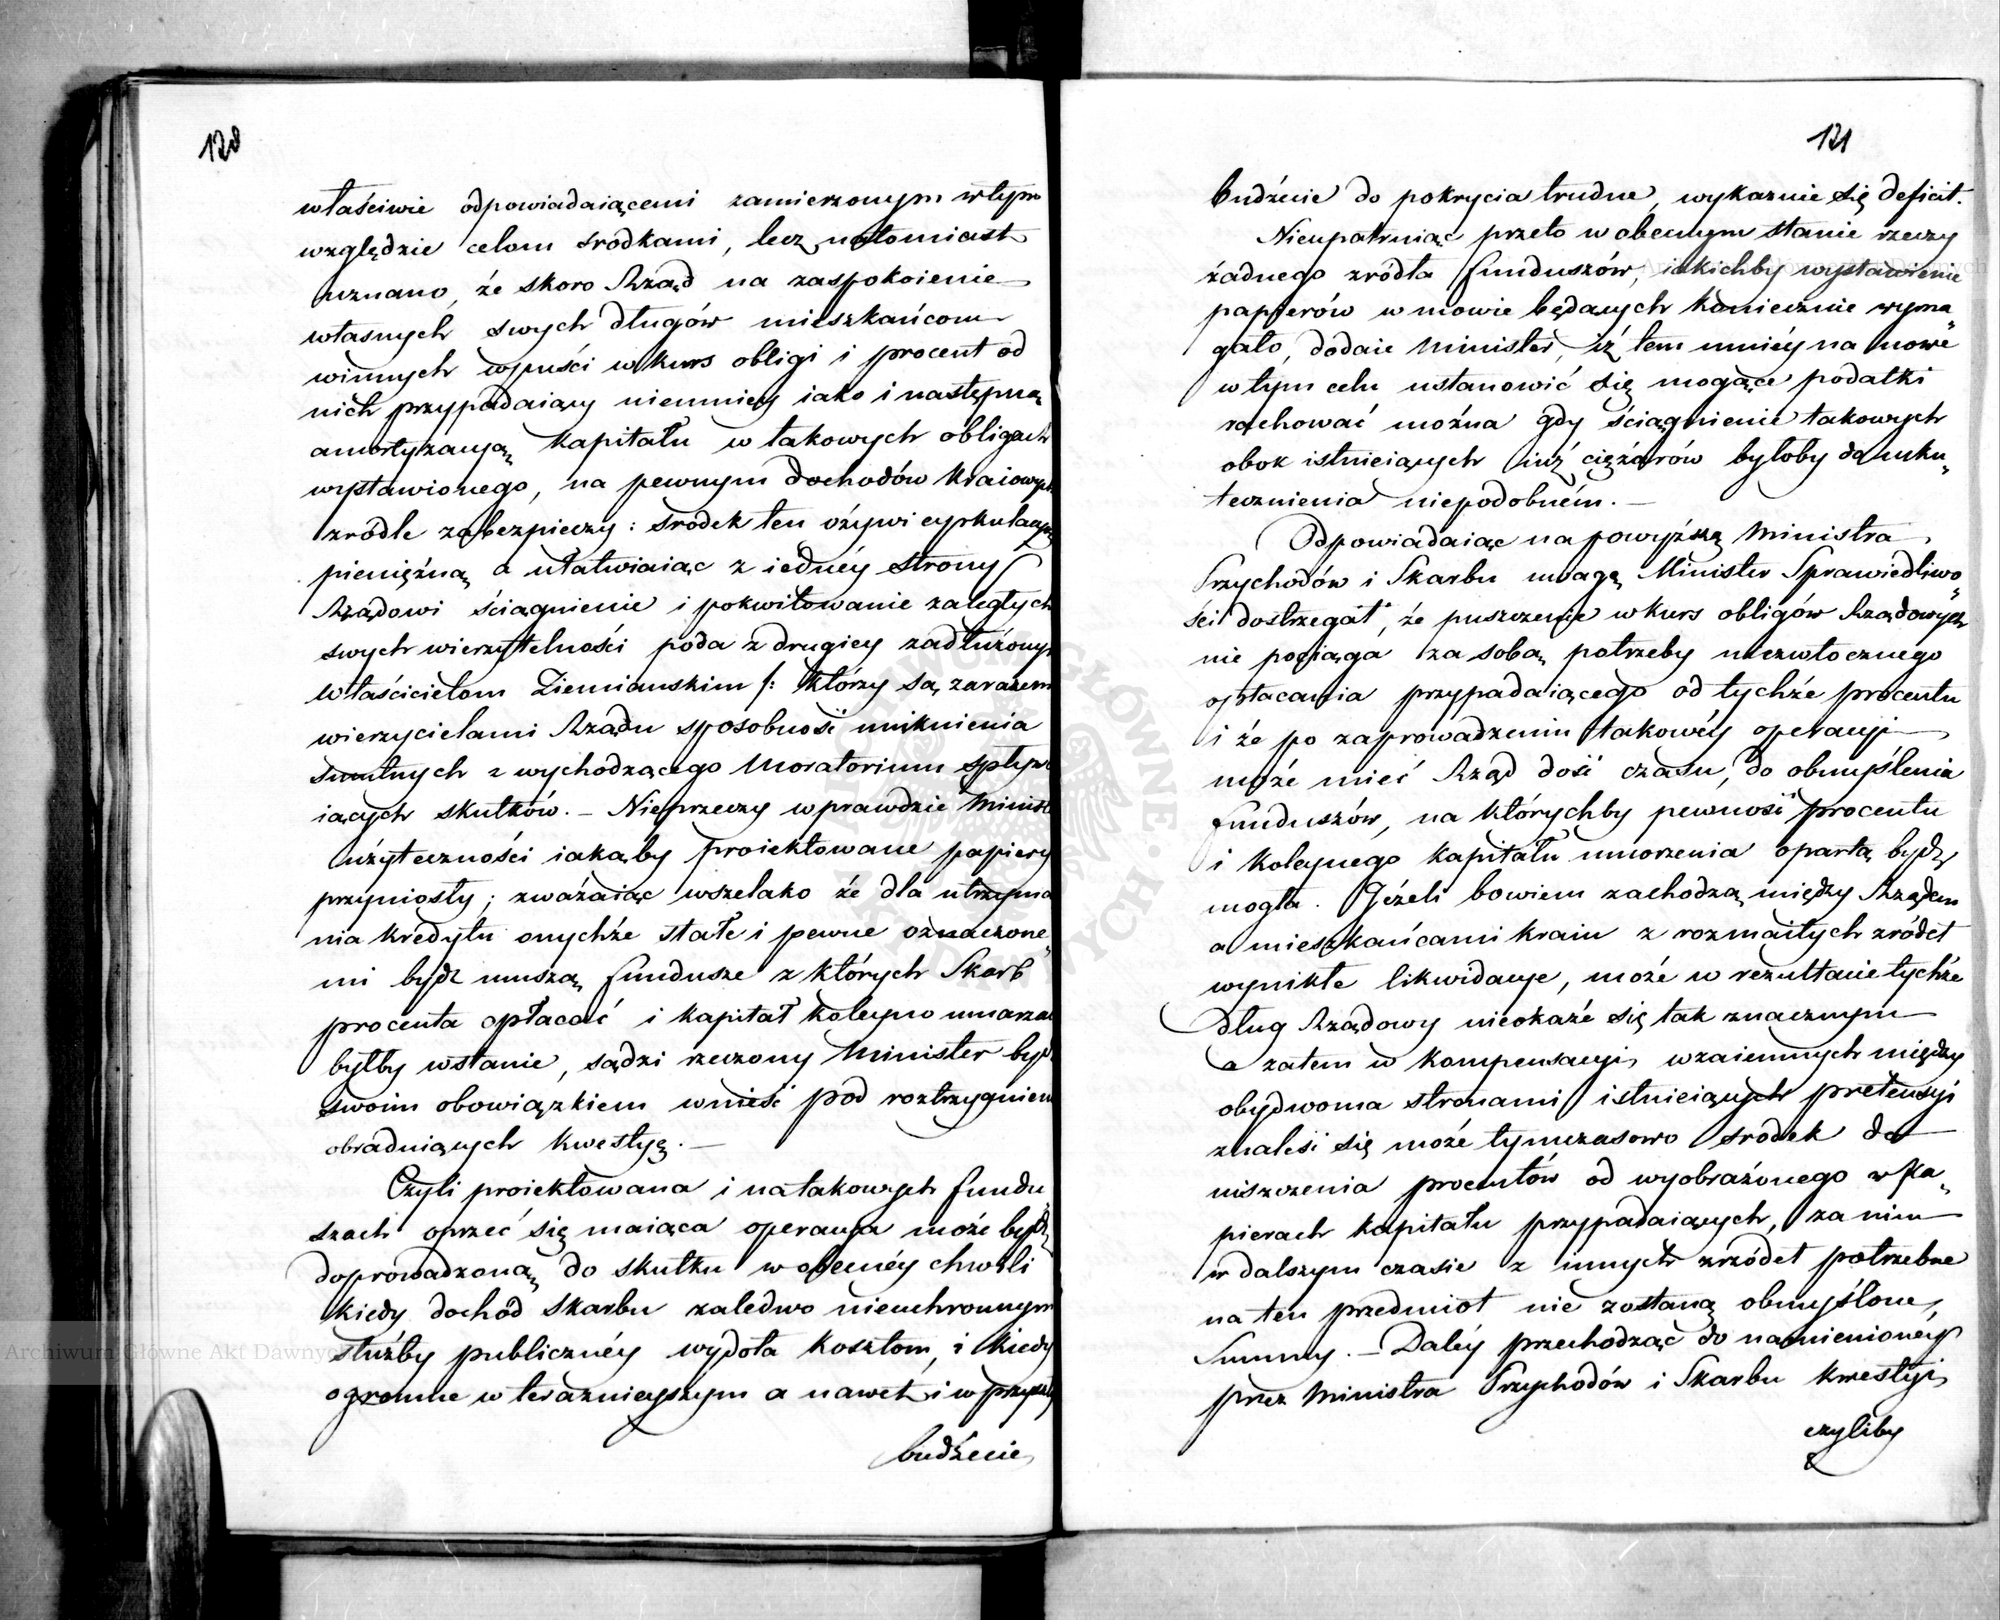 120
właściwie odpowiadaiącemi zamierzonym w tym
względzie celom srodkami, lecz natomiast
uznano, że skoro Rząd na zaspokoienie
własnych swych długów mieszkańcom
winnych wpuści w kurs obligi i procent od
nich przypadaiący niemniey iako i następną
amortyzacyą kapitału w takowych obligach
wystawionego, na pewnym dochodów kraiowych
zródle zabezpieczy: srodek ten ożywi cyrkulacyą
pieniężną a ułatwiaiąc z iednéy strony
Rządowi ściągnienie i pokwitowanie zaległych
swych wierzytelności poda z drugiey zadłużonym
Właścicielom Ziemianskim /: którzy są zarazem
wierzycielami Rządu sposobność uniknienia
smutnych z wychodzącego Moratorium spływa
iących skutków. – Nieprzeczy wprawdzie Minist
użyteczności iakąby proiektowane papiery
przyniosły; zważaiąc wszelako że dla utrzyma
nia kredytu onychże stałe i pewne oznaczone
mi bydź muszą fundusze z których Skarb
procenta opłacać i kapitał koleyno umarzać
byłby wstanie, sądzi rzeczony Minister bydź
swoim obowiązkiem wnieść pod roztrzygnienie
obraduiących kwestyę. –
Czyli proiektowana i na takowych fundu
szach oprzeć się maiąca operacya może bydź
doprowadzoną do skutku w obecnéy chwili
kiedy dochód Skarbu zaledwo nieuchronnym
służby publicznéy wydoła kosztom, i kiedy
ogromne w teraznieyszym a nawet i w przyszły
budżecie
121
budżecie do pokrycia trudne, wykazuie się deficit.
Nieupatruiąc przeto w obecnym stanie rzeczy
żadnego zródła funduszów, iakichby wystawienie
papierów w mowie będących koniecznie wyma„
gało, dodaie Minister, iż tem mniéy na nowe
w tym celu ustanowić się mogące podatki
rachować można gdy ściągnienie takowych
obok istnieiących iuż ciężarów byłoby do usku„
tecznienia niepodobném. –
Odpowiadaiąc na powyższą Ministra
Przychodów i Skarbu uwagę Minister Sprawiedliwo„
ści dostrzegał, że puszczenie w kurs obligów Rządowych
nie pociąga za sobą potrzeby niezwłocznego
opłacania przypadaiącego od tychże procentu
i że po zaprowadzeniu takowéy operacyi
może mieć Rząd dość czasu, do obmyślenia
funduszów, na którychby pewność procentu
i koleynego kapitału umorzenia opartą bydź
mogła. Jeżeli bowiem zachodzą między Rządem
a mieszkańcami kraiu z rozmaitych zródeł
wynikłe likwidacye, może w rezultacie tychże
dług Rządowy nieokaże się tak znacznym
a zatem w kompensacyi wzaiemnych między
obydwoma stronami istnieiących pretensyi
znaleść się może tymczasowo srodek do
uiszczenia procentów od wyobrażonego w Pa„
pierach kapitału przypadaiących, za nim
w dalszym czasie z innych zrzódeł potrzebne
na ten przedmiot nie zostaną obmyślone,
Summy. – Daléy przechodząc do namienionéy
przez Ministra Przychodów i Skarbu kwestyi,
czyliby
Archiwum Główne Akt Dawnych